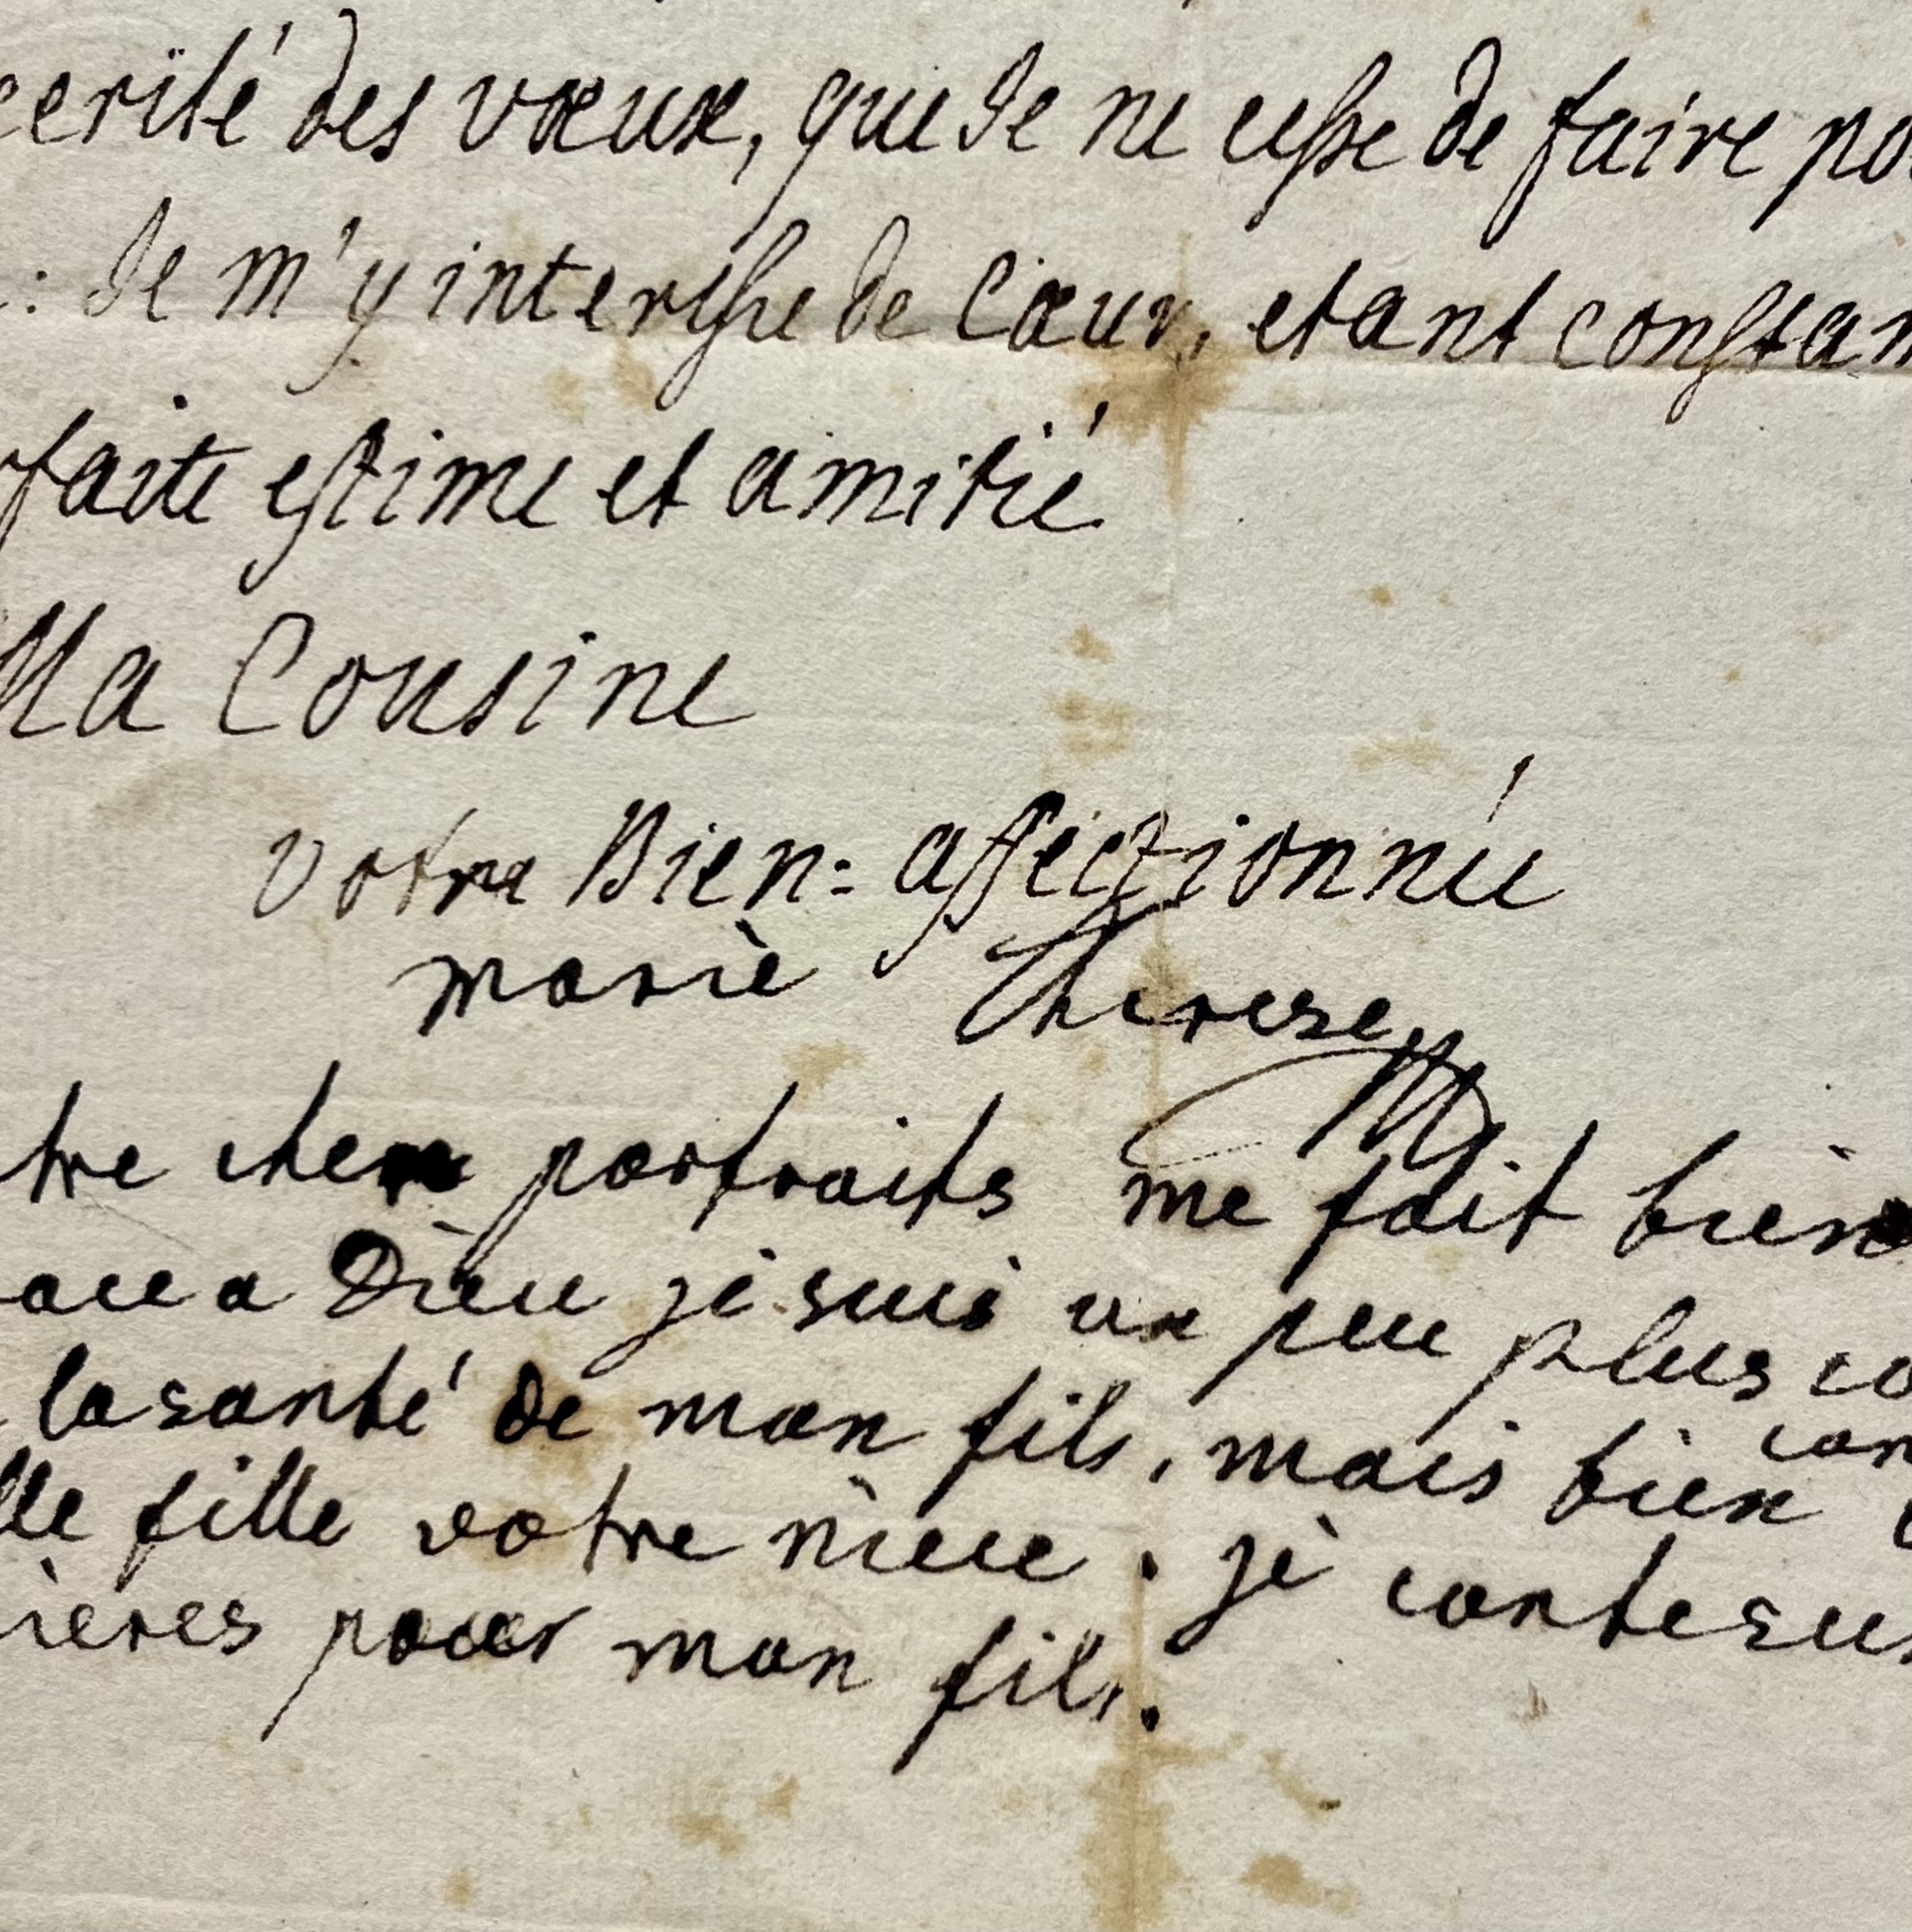 cerité des vœux, que Je ne cesse de faire po
: Je m'y interesse de Cœur, etant constam
rfaite estime et amitié
Ma Cousine
votre Bien= affectionnée
mariè Therese
tre cher portraits me fait bien
ace a Dieu je suis un peu plus co
la santé de mon fils, mais bien
con
lle fille votre niece. je conte sur
ières pour mon fils.